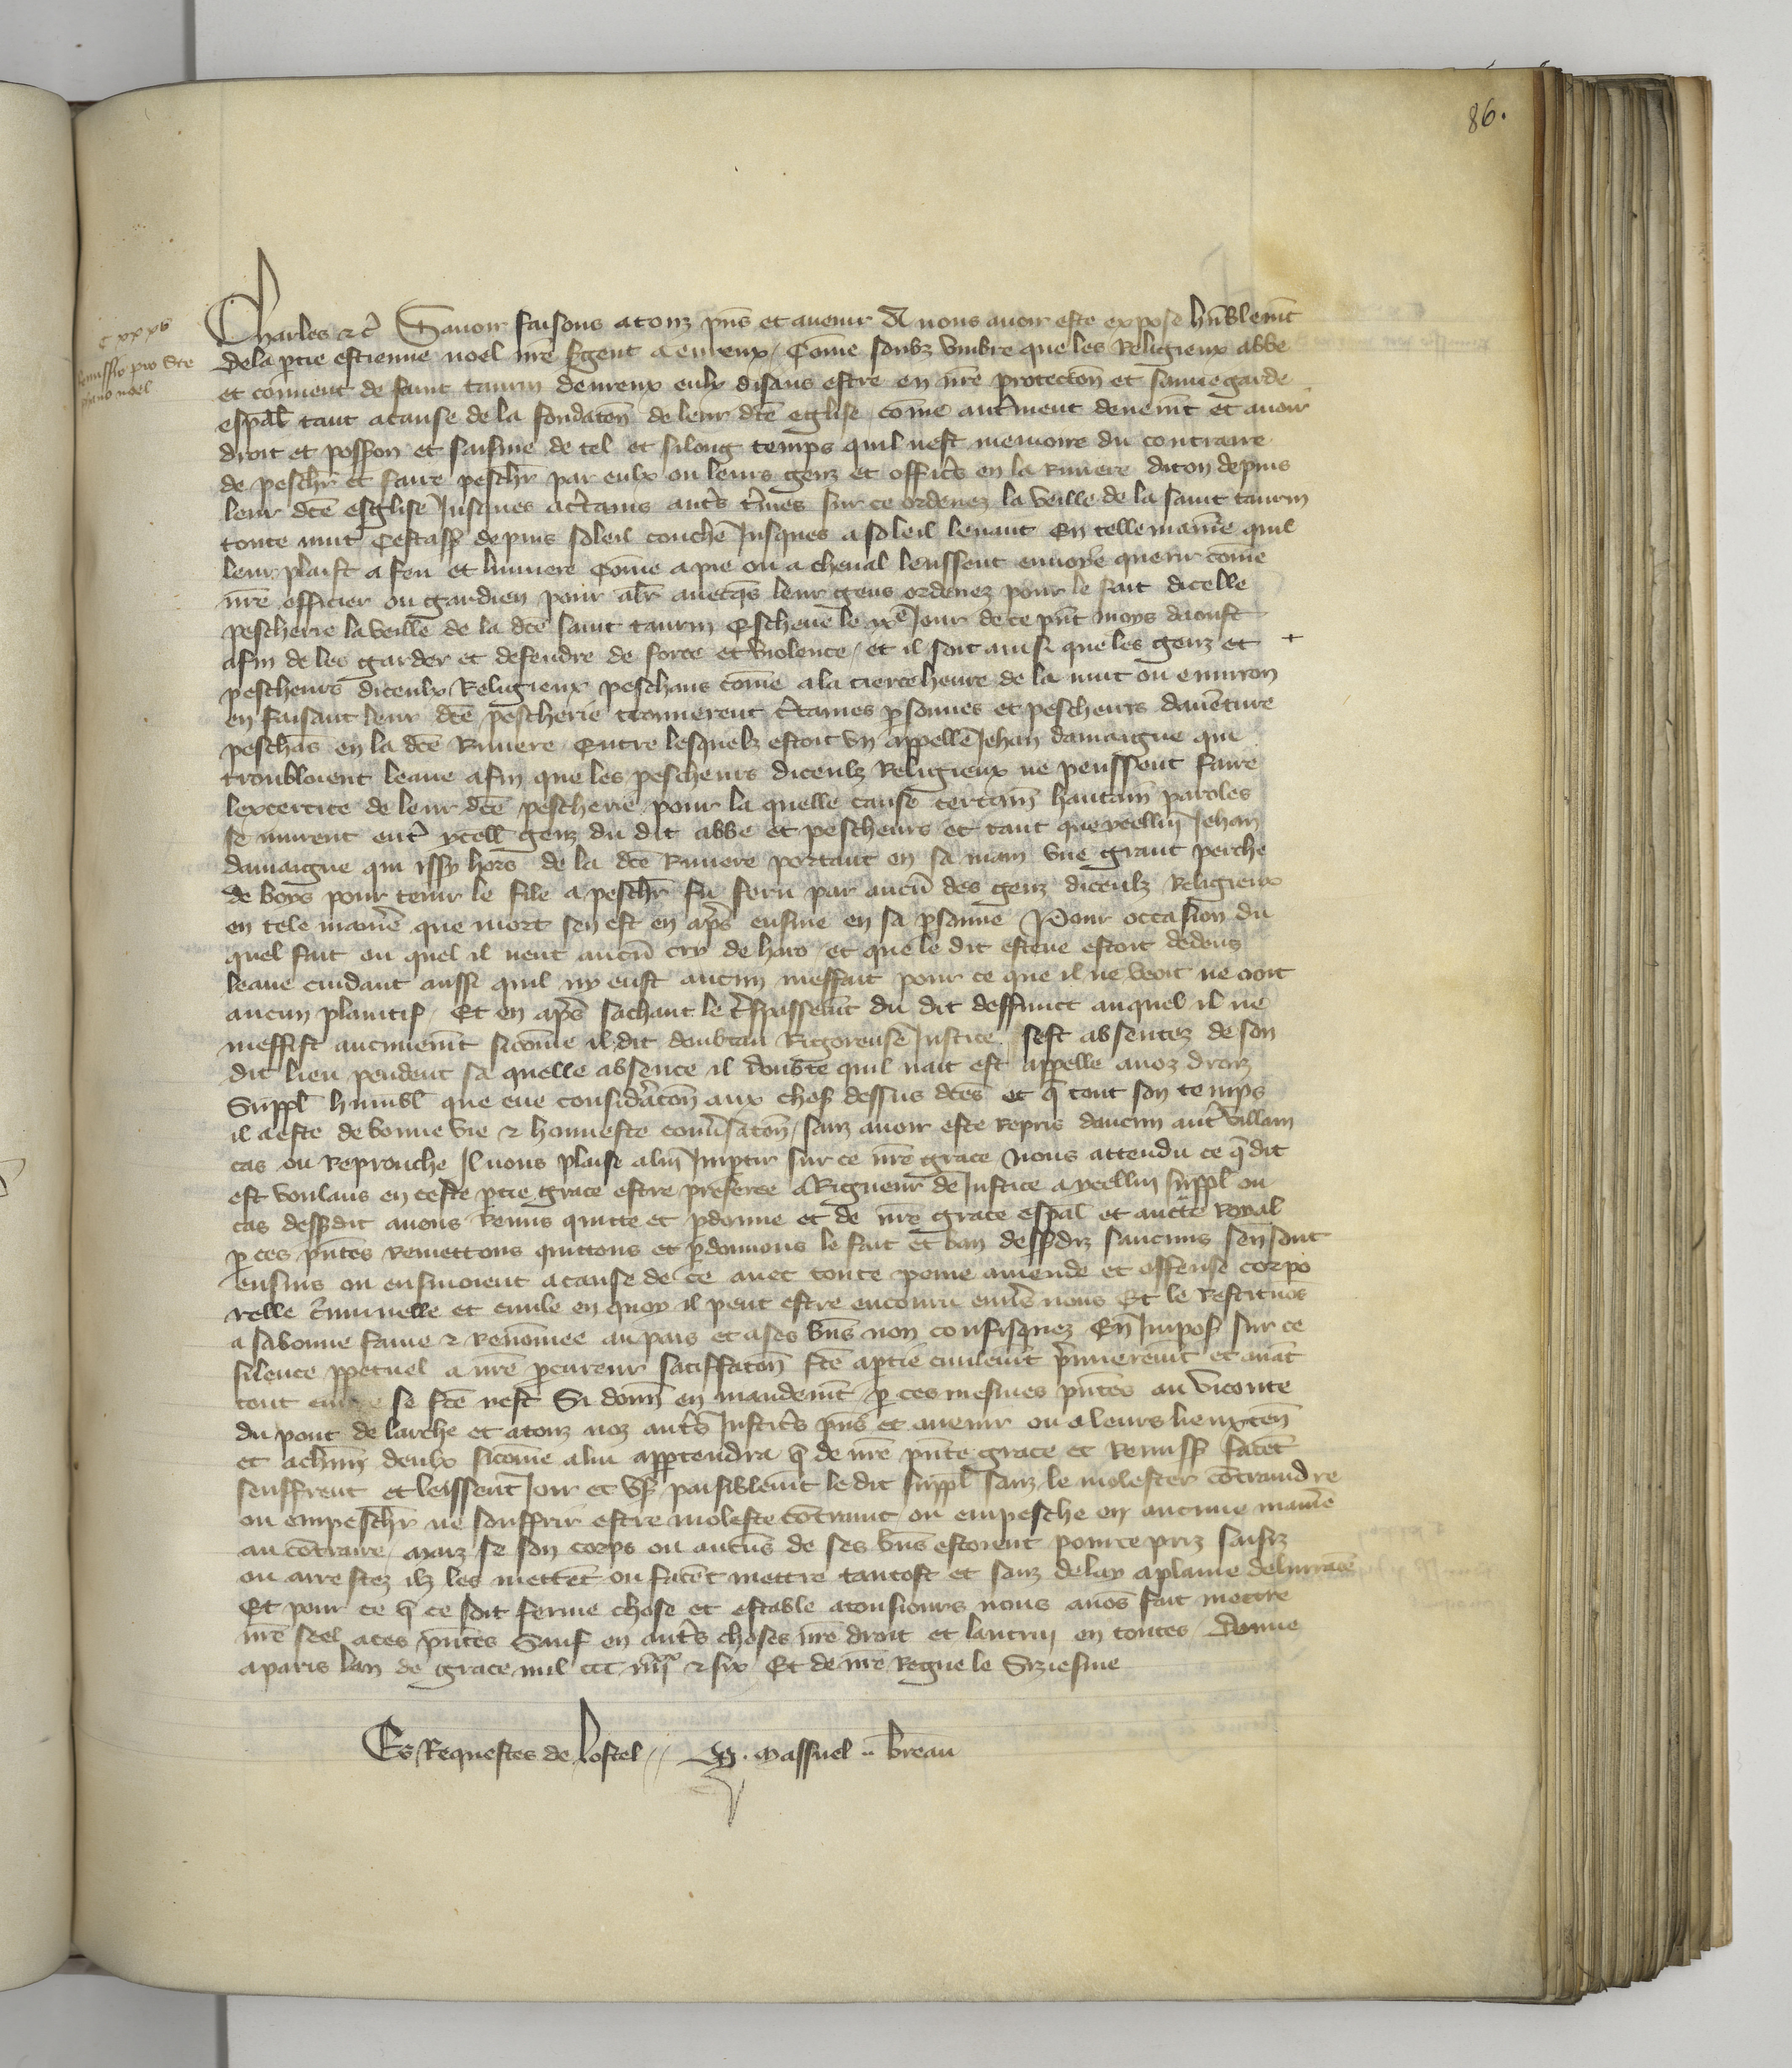 86.
C xxxv
Remissio pro Ste
phano noel
Charles &c̃ Sauoir faisons a touz p̃ns et auenir A nous auoir este expose hũblemẽt
de la p̃tie estienne noel nr̃e sergent a eureux / Cõme soubz vmbre que les Religieux abbe
et conuent de saint taurin deureux eulx disans estre en nr̃e protectõn et sauuegarde
esp̃al tant a cause de la fondatõn de leur dc̃e eglise / cõme autrement deuemẽt et auoir
droit et possion et saisine de tel et si long temps quil nest memoire du contraire
de pescher et faire pescher par eulx ou leurs genz et officrs en la Riuiere diton depuis
leur dc̃e esglise Jusques a c̃tains autr̃s t̃mes sur ce ordenez la veille de la saint taurin
toute nuit Cestass̃ depuis soleil couchẽ Jusques a soleil leuant En telle maniẽre quil
leur plaist a feu et lumiere Cõme a pie ou a cheual leussent enuoye querir cõme
nr̃e officier ou gardien pour alr̃ auecq̃s leur gens ordenez pour le fait dicelle
pescherie la veille de la dc̃e saint taurin Escheue le xe Jour de ce p̃nt moys daoust
afin de les garder et defendre de force et violence / et il soit ainsi que les genz et +
pescheurs diceulx Religieux peschans cõme a la tierce heure de la nuit ou enuiron
en faisant leur dc̃e pescherie trouuerent c̃taines p̃sonnes et pescheurs dauẽture
peschãs en la dc̃e Riuiere / Entre lesquelz estoit vn appelle Jehan damaigne qui
troubloient leaue afin que les pescheurs diceulz Religieux ne peussent faire
lexcercice de leur dc̃e pescherie pour la quelle cause certaiñ hautaiñ paroles
se murent entr̃ ycell̃ genz du dit abbe et pescheurs et tant que ycelluy Jehan
damaigne qui yssy hors de la dc̃e Riuiere portant en sa main vne grant perche
de boys pour tenir le file a peschr̃ fu feru par aucũ des genz diceulz Religieux
en tele maniẽre que mort sen est en apr̃s ensuie en sa p̃sonne Pour occasion du
quel fait ou quel il neut aucũ cry de haro / et que le dit esteue estoit dedens
leaue cuidant aussi quil ny eust aucun meffait pour ce que il ne veoit ne ooit
aucun plaintif / Et en apr̃s sachant le t̃spassemẽt du dit deffunct auquel il ne
meffist aucunemẽt sicõme il dit doubtan Rigoreuse Justice sest absentez de son
dit lieu pendent sa quelle absence il doubte quil nait est appelle a noz droiz
Suppl̃ humbl̃ que eue considr̃atõn aux chos̃ dessus dc̃es et q̃ tout son temps
il a este de bonne vie & honneste conũsatõn / sanz auoir este repris daucun autr̃ villain
cas ou reprouche Il nous plaise a luy Imp̃tir sur ce nr̃e grace Nous attendu ce q̃ dit
est voulans en ceste p̃tie grace estre preferee a Rigueur de Justice a ycelluy suppl̃ ou
cas dessusdit auons Remis quitte et p̃donne et de nr̃e grace esp̃al et auctte Royal
p̃ ces p̃ntes remettons quittons et p̃donnons le fait et ban dessusdiz saucuns sen sont
ensuis ou ensuioient a cause de ce auec toute peine amende et offense corpo
relle c̃iminelle et ciuile en quoy il peut estre encouru enũs nous Et le Restituõs
a sa bonne fame & Renõmee au pais et a ses bñs non confisquez En Imposs̃ sur ce
silence p̃petuel a nr̃e p̃cureur satiffatõn fc̃e a p̃tie ciuilemẽt p̃mieremẽt et auãt
tout euure se fc̃e nest Si donñ en mandemẽt p̃ ces mesmes p̃ntes au viconte
du pont de larche et a touz noz autr̃s Justicr̃s p̃ns et auenir ou a leurs lieuxteñ
et a chũn deulx sicõme a lui app̃tendra q̃ de nr̃e p̃nte grace et Remiss̃ facẽt
seuffrent et leissent Joir et vs̃ paisiblemẽt le dit suppl̃ sanz le molester cõtraindre
ou empeschr̃ ne souffrir estre moleste cõtraint ou empesche en aucune maniẽre
au cõtraire / maiz se son corps ou aucũs de ses bñs estoient pour ce priz saisiz
ou arrestez ilz les mettẽt ou facẽt mettre tantost et sanz delay a plaine deliurãce
Et pour ce q̃ ce soit ferme chose et estable a tousiours nous auõs fait mettre
nr̃e seel a ces p̃ntes Sauf en autr̃s choses nr̃e droit et lautruy en toutes Donne
a paris lan de grace mil ccc iiiixx & six Et de nr̃e Regne le Siziesme
Es Requestes de lostel // G. Massuel .. breau